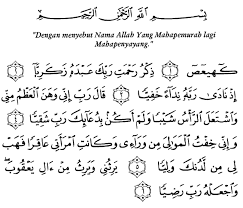 بِسْمِ اللَّهِ الرَّحْمَٰنِ الرَّحِيمِ
"Dengan menyebut Nama Allah Yang Mahapemurah lagi
Mahapenyayang."
كٓهيعٓصٓ ﴿١﴾ ذِكْرُ رَحْمَتِ رَبِّكَ عَبْدَهُۥ زَكَرِيَّآ ﴿٢﴾
إِذْ نَادَىٰ رَبَّهُۥ نِدَآءً خَفِيًّا ﴿٣﴾ قَالَ رَبِّ إِنِّي وَهَنَ الْعَظْمُ مِنِّي
وَاشْتَعَلَ الرَّأْسُ شَيْبًا وَلَمْ أَكُنۢ بِدُعَآئِكَ رَبِّ شَقِيًّا ﴿٤﴾
وَإِنِّي خِفْتُ الْمَوَٰلِيَ مِن وَرَآءِي وَكَانَتِ امْرَأَتِي عَاقِرًا فَهَبْ
لِي مِن لَّدُنكَ وَلِيًّا ﴿٥﴾ يَرِثُنِي وَيَرِثُ مِنْ ءَالِ يَعْقُوبَ ۖ
وَاجْعَلْهُ رَبِّ رَضِيًّا ﴿٦﴾